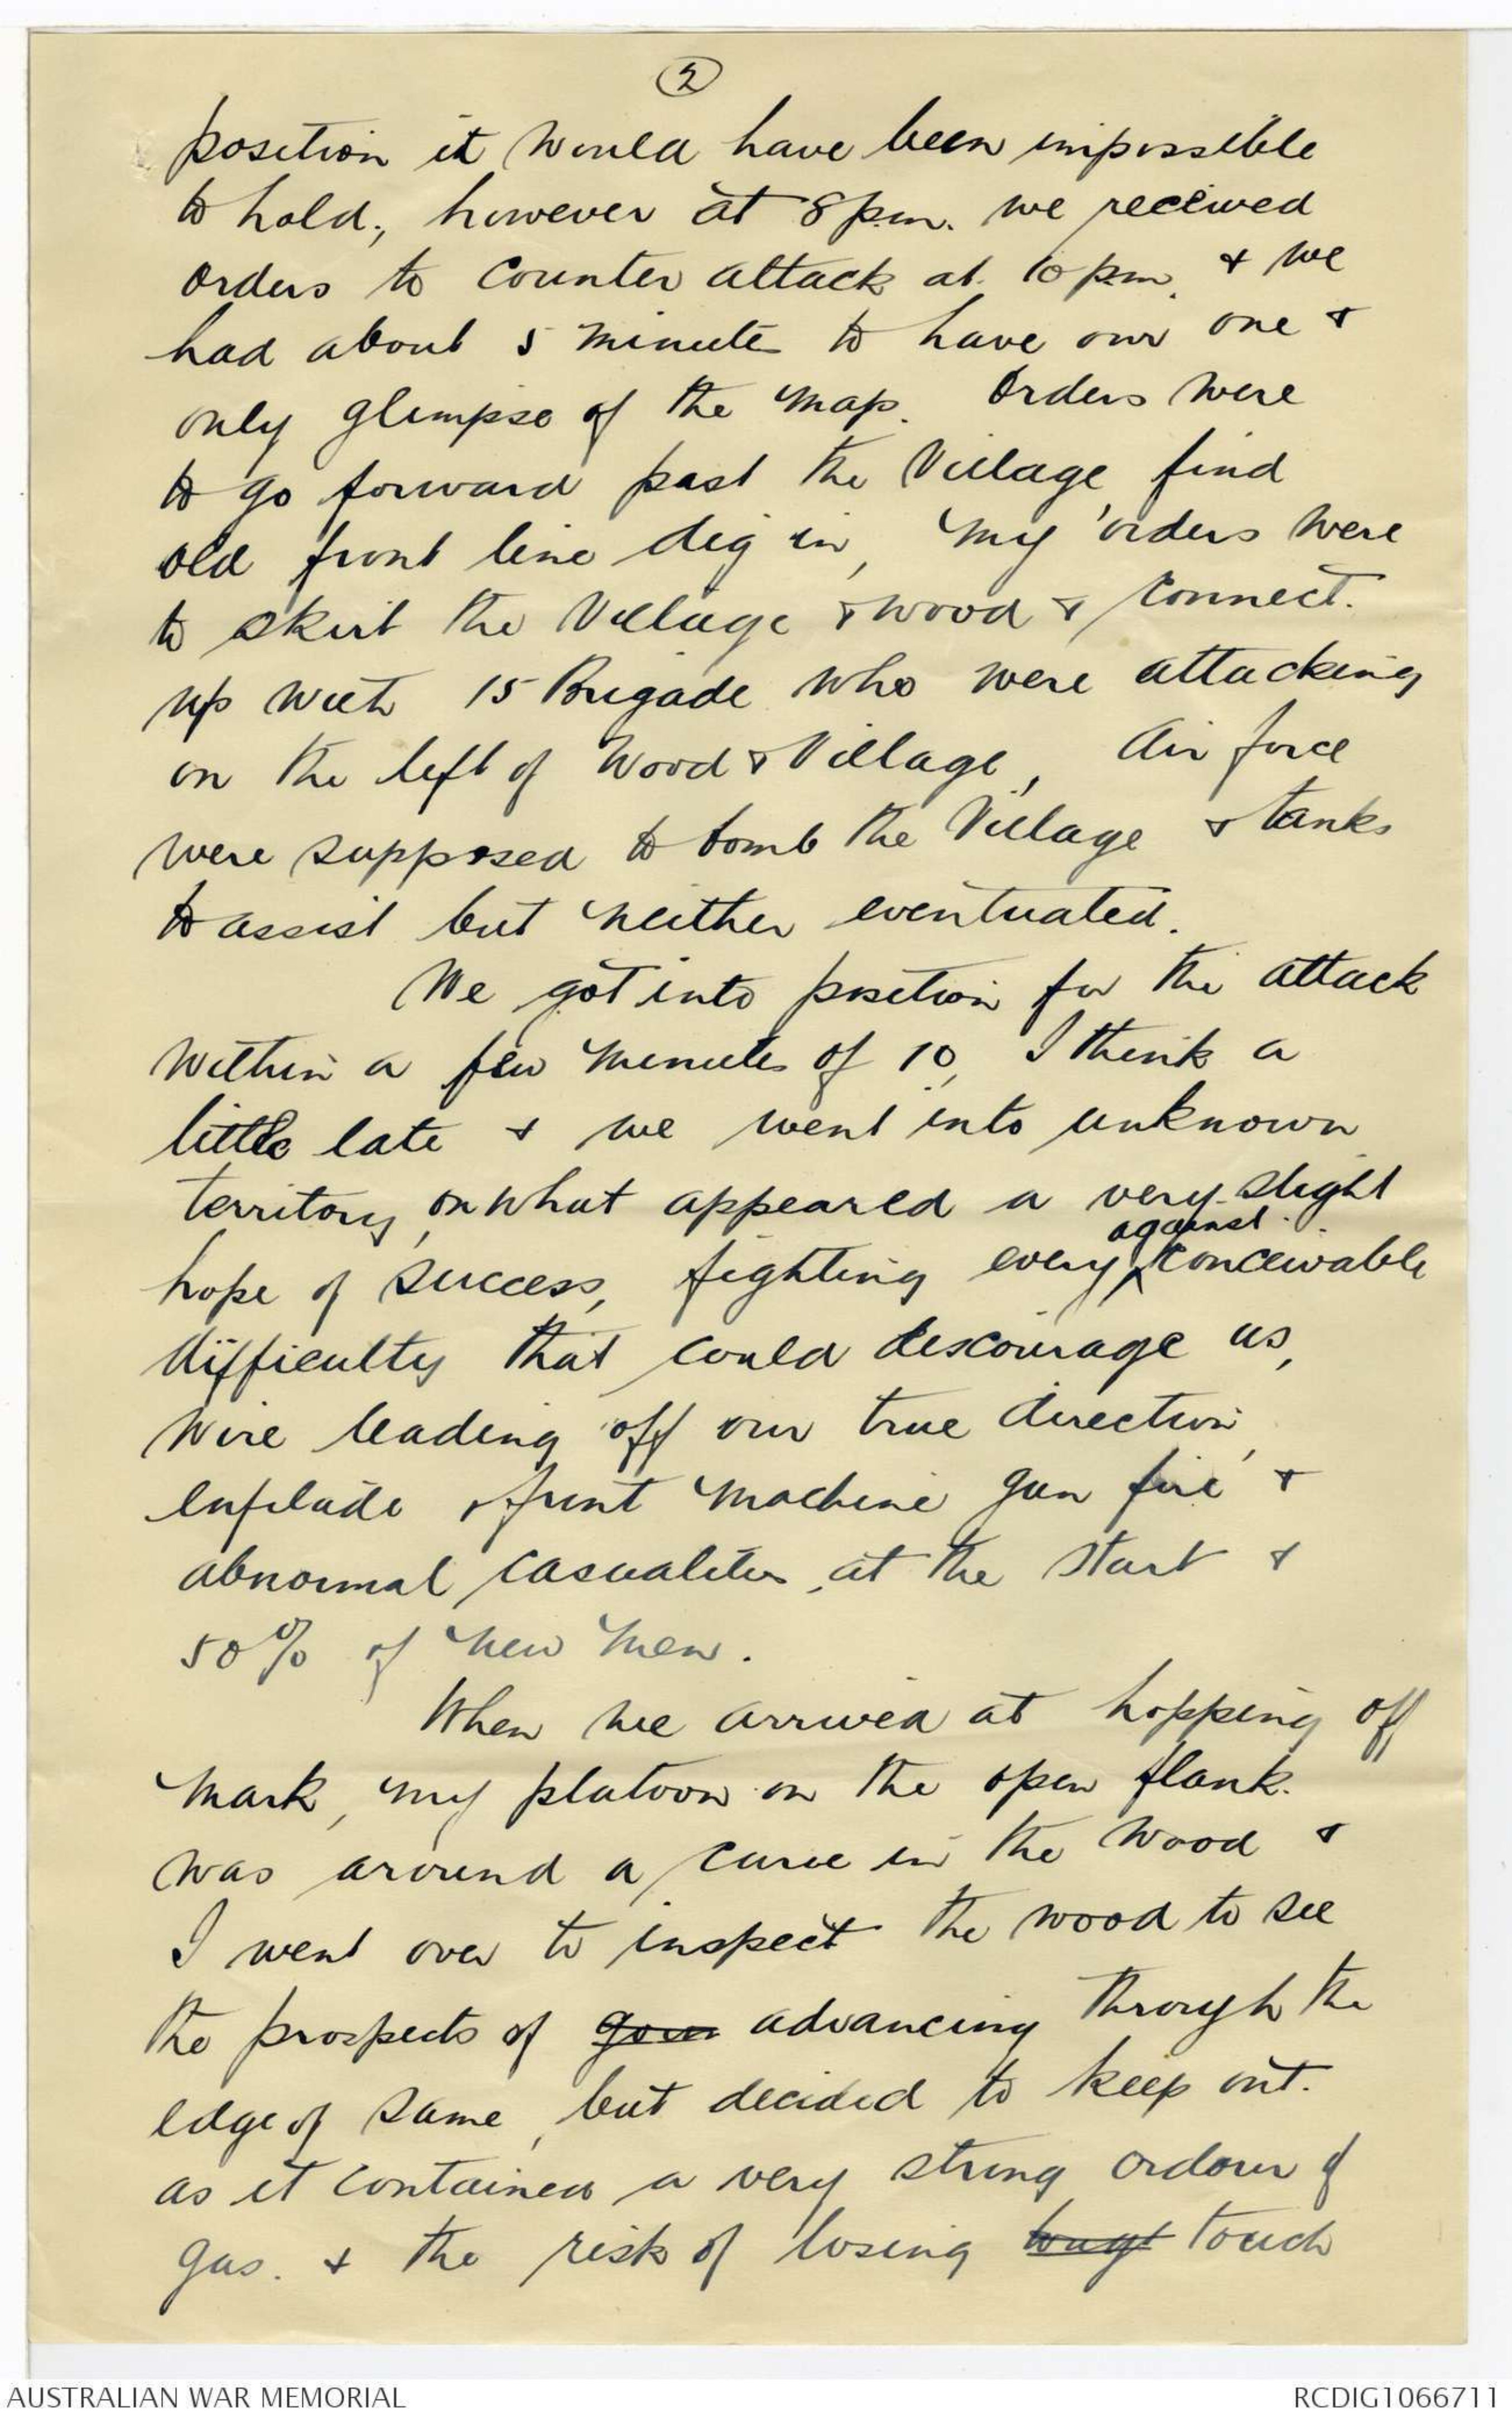 2
position it would have been impossible
to hold; however at 8 p.m. we received
orders to counter attack at 10 pm. & we
had about 5 minutes to have our one &
only glimpse of the map. Orders were
to go forward past the Village, find
old front line dig in, my orders were
to skirt the Village & wood & connect.
up with 15 Brigade who were attacking
on the left of Wood & Village, Air force
were supposed to bomb the Village & tanks
to assist but neither eventuated.
We got into position for the attack
within a few minutes of 10, I think a
little late & we went into unknown
territory, on what appeared a very slight
against
hope of success, fighting every conceivable
difficulty that could discourage us,
wire leading off our true direction,
enfilade & front machine gun fire &
abnormal casualites, at the start &
50% of new men.
When we arrived at hopping off
mark, my platoon on the open flank.
was around a curve in the wood &
I went over to inspect the wood to see
the prospects of goin advancing through the
edge of same, but decided to keep out.
as it contained a very strong ordour of
gas. & the risk of losing touch
AUSTRALIAN WAR MEMORIAL
RCDIG1066711